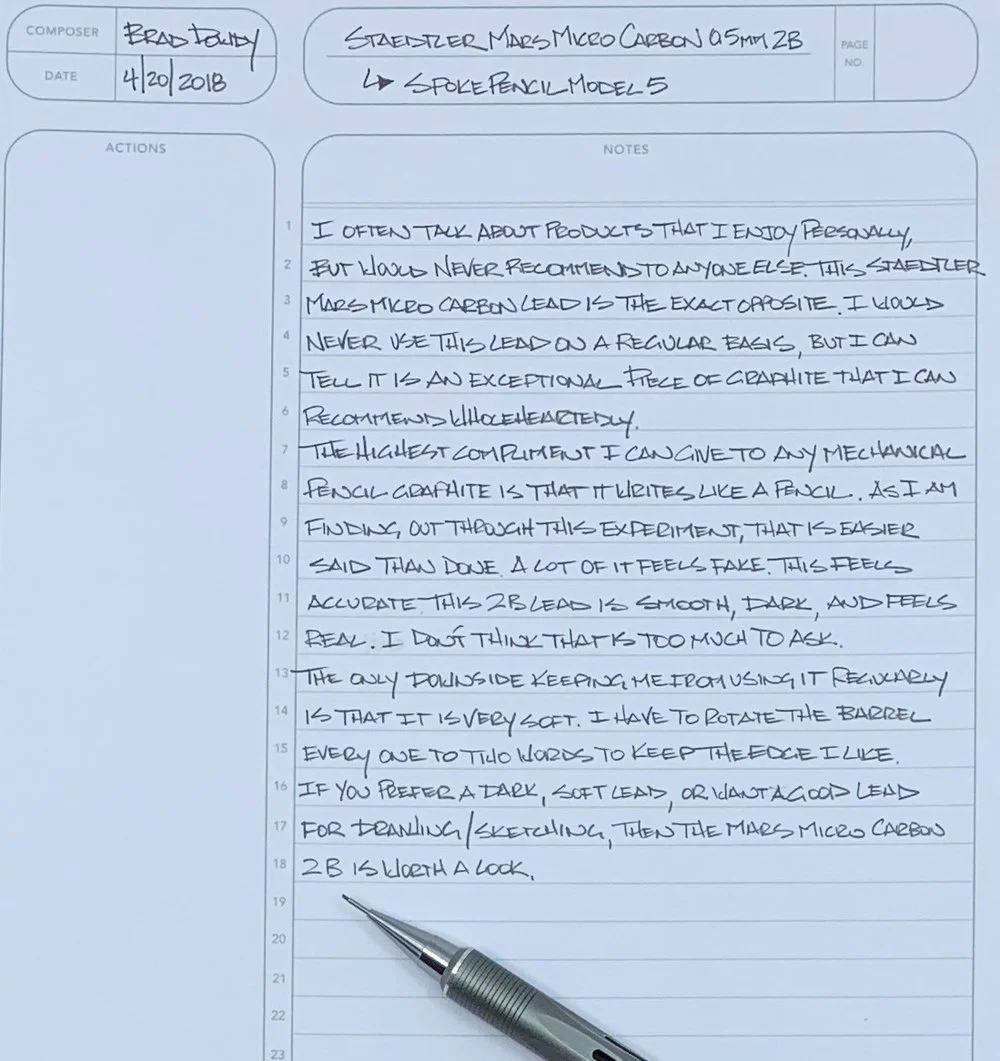 COMPOSER BRAD DOWDY
DATE 4/20/2018
STAEDTLER MARS MICRO CARBON 0.5MM 2B
↳ SPOKE PENCIL MODEL 5
PAGE NO.
ACTIONS
NOTES
1 I OFTEN TALK ABOUT PRODUCTS THAT I ENJOY PERSONALLY,
2 BUT WOULD NEVER RECOMMEND TO ANYONE ELSE. THIS STAEDTLER
3 MARS MICRO CARBON LEAD IS THE EXACT OPPOSITE. I WOULD
4 NEVER USE THIS LEAD ON A REGULAR BASIS, BUT I CAN
5 TELL IT IS AN EXCEPTIONAL PIECE OF GRAPHITE THAT I CAN
6 RECOMMEND WHOLEHEARTEDLY.
7 THE HIGHEST COMPLIMENT I CAN GIVE TO ANY MECHANICAL
8 PENCIL GRAPHITE IS THAT IT WRITES LIKE A PENCIL. AS I AM
9 FINDING OUT THROUGH THIS EXPERIMENT, THAT IS EASIER
10 SAID THAN DONE. A LOT OF IT FEELS FAKE. THIS FEELS
11 ACCURATE. THIS 2B LEAD IS SMOOTH, DARK, AND FEELS
12 REAL. I DON'T THINK THAT IS TOO MUCH TO ASK.
13 THE ONLY DOWNSIDE KEEPING ME FROM USING IT REGULARLY
14 IS THAT IT IS VERY SOFT. I HAVE TO ROTATE THE BARREL
15 EVERY ONE TO TWO WORDS TO KEEP THE EDGE I LIKE.
16 IF YOU PREFER A DARK, SOFT LEAD, OR WANT A GOOD LEAD
17 FOR DRAWING/SKETCHING, THEN THE MARS MICRO CARBON
18 2B IS WORTH A LOOK.
19
20
21
22
23